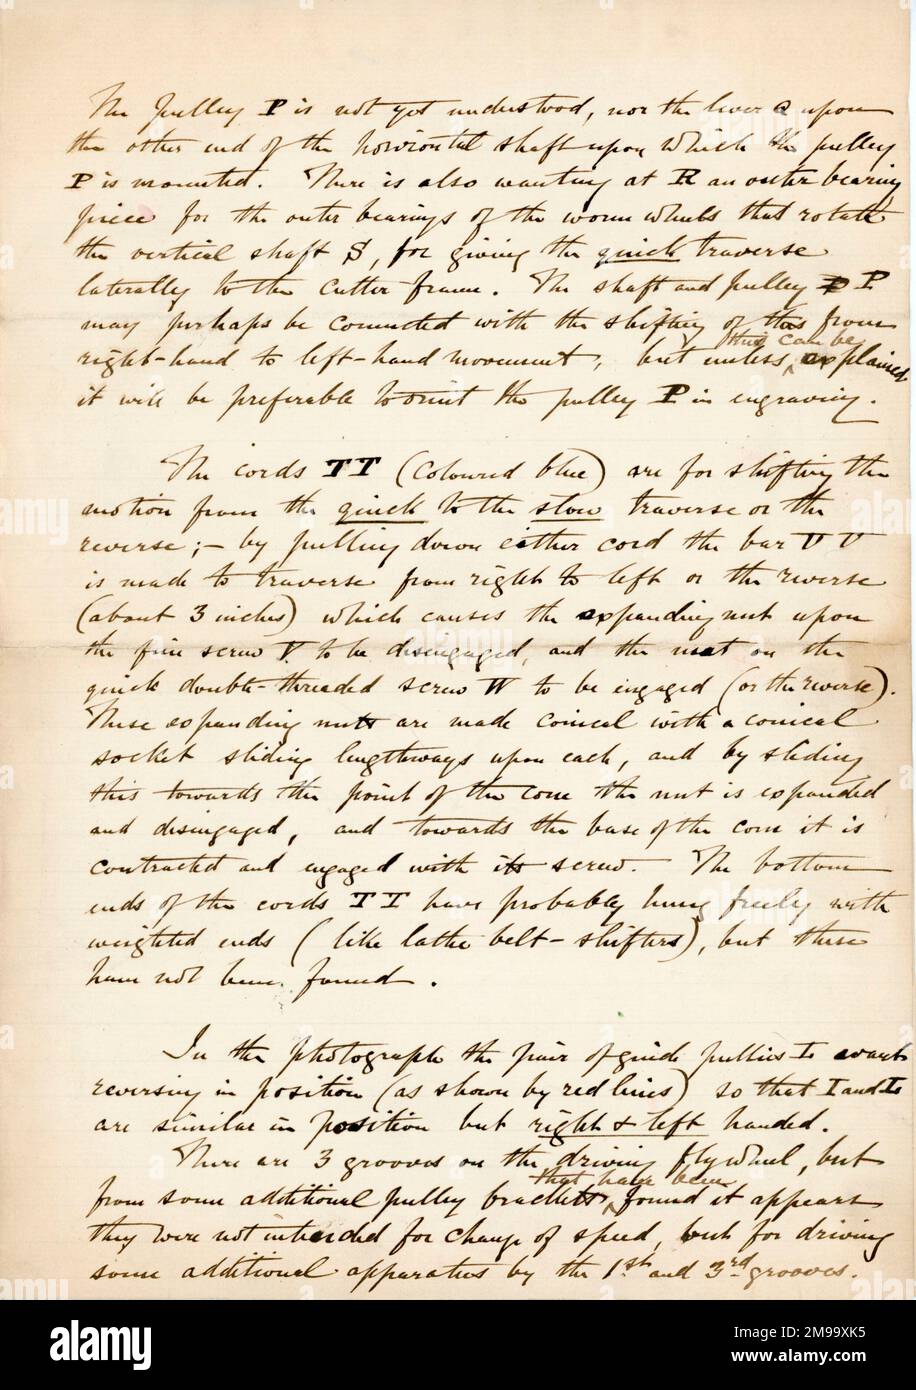 The pulley P is not yet understood, nor the lever Q upon
the other end of the horizontal shaft upon which the pulley
P is mounted. There is also wanting at R an outer bearing
piece for the outer bearings of the worm wheels that rotate
the vertical shaft S, for giving the quick traverse
laterally to the cutter frame. The shaft and pulley P P
may perhaps be connected with the shifting of this from
right-hand to left-hand movement, but unless this can be explained
it will be preferable to omit the pulley P in engraving.
The cords TT (coloured blue) are for shifting the
motion from the quick to the slow traverse or the
reverse; – by pulling down either cord the bar U U
is made to traverse from right to left or the reverse
(about 3 inches) which causes the expanding nut upon
the fine screw V. to be disengaged, and the nut on the
quick double-threaded screw W to be engaged (or the reverse).
These expanding nuts are made conical with a conical
socket sliding lengthways upon each, and by sliding
this towards the point of the cone the nut is expanded
and disengaged, and towards the base of the cone it is
contracted and engaged with its screw. The bottom
ends of the cords T T have probably hung freely with
weighted ends (like lathe belt-shifters), but these
have not been found.
In the photograph the pair of guide pullies I2 wants
reversing in position (as shown by red lines) so that I and I2
are similar in position but right & left handed.
There are 3 grooves on the driving flywheel, but
from some additional pulley brackets that have been found it appears
they were not intended for change of speed, but for driving
some additional apparatus by the 1st. and 3rd. grooves.
alamy
Image ID: 2M99XK5
www.alamy.com